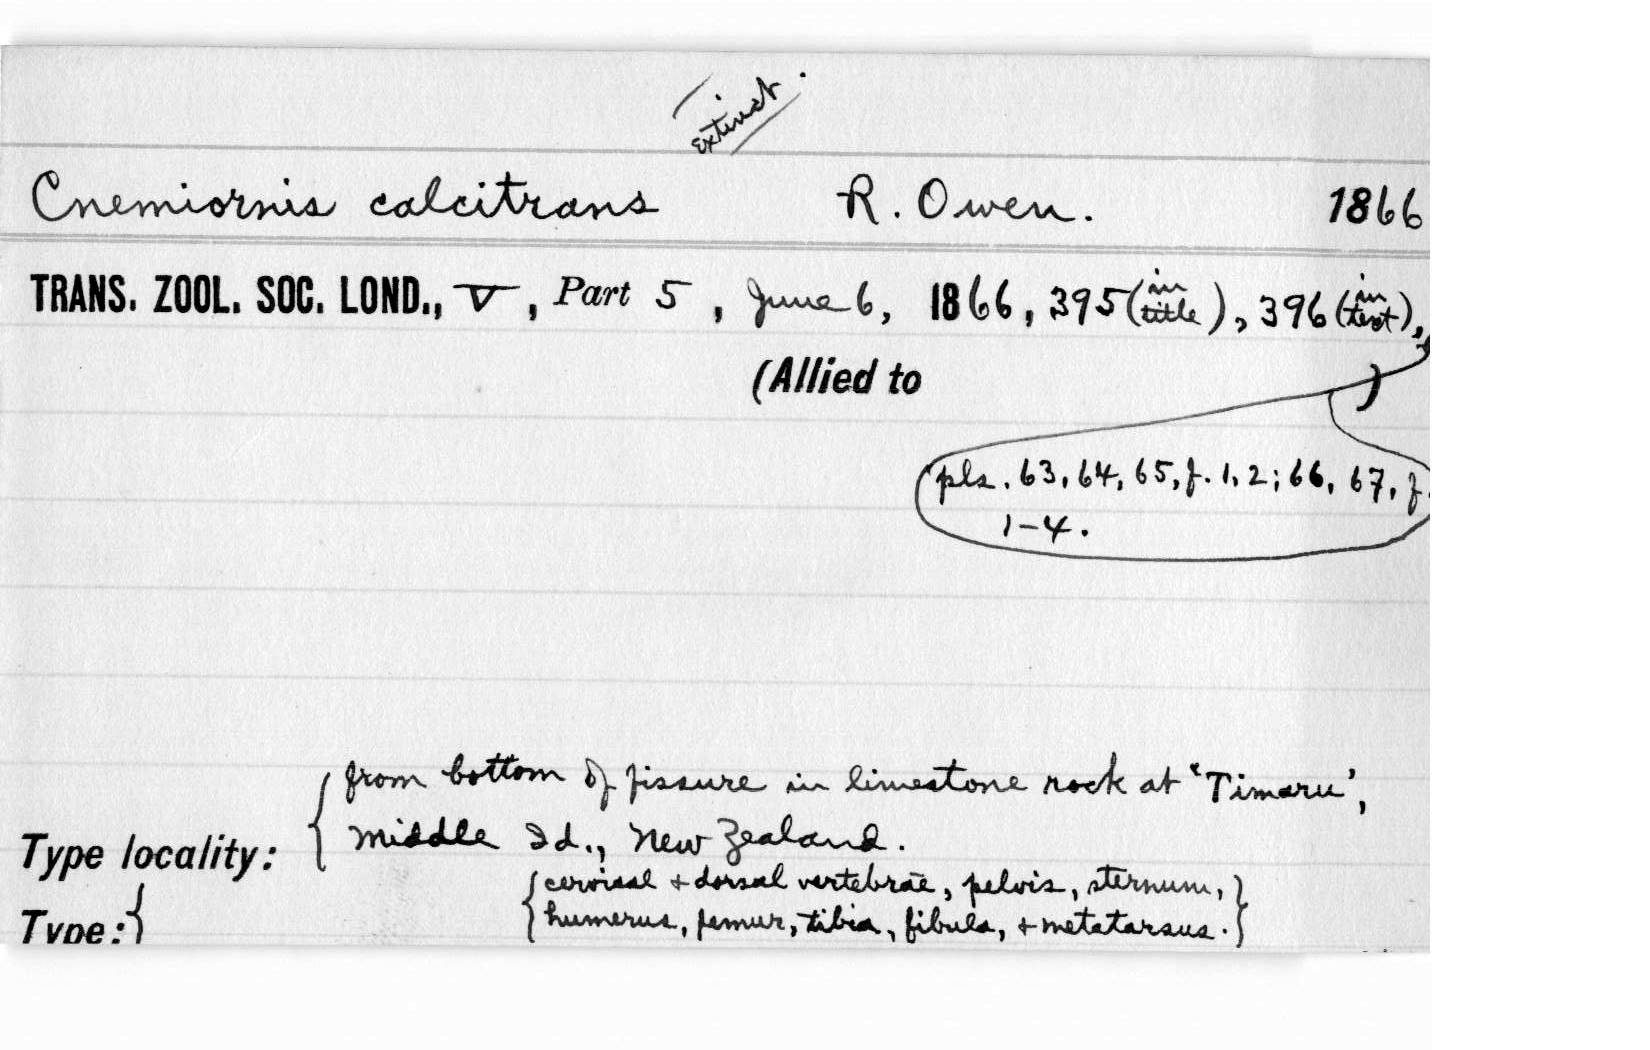 extinct.
Cnemiornis calcitrans R. Owen. 1866
TRANS. ZOOL. SOC. LOND., V, Part 5, June 6, 1866, 395 (in title), 396 (in text),
(Allied to )
pls. 63, 64, 65, f. 1, 2; 66, 67, f.
1-4.
from bottom of fissure in limestone rock at 'Timaru',
Type locality: Middle Id., New Zealand.
cervical + dorsal vertebrae, pelvis, sternum,
Type: humerus, femur, tibia, fibula, + metatarsus.